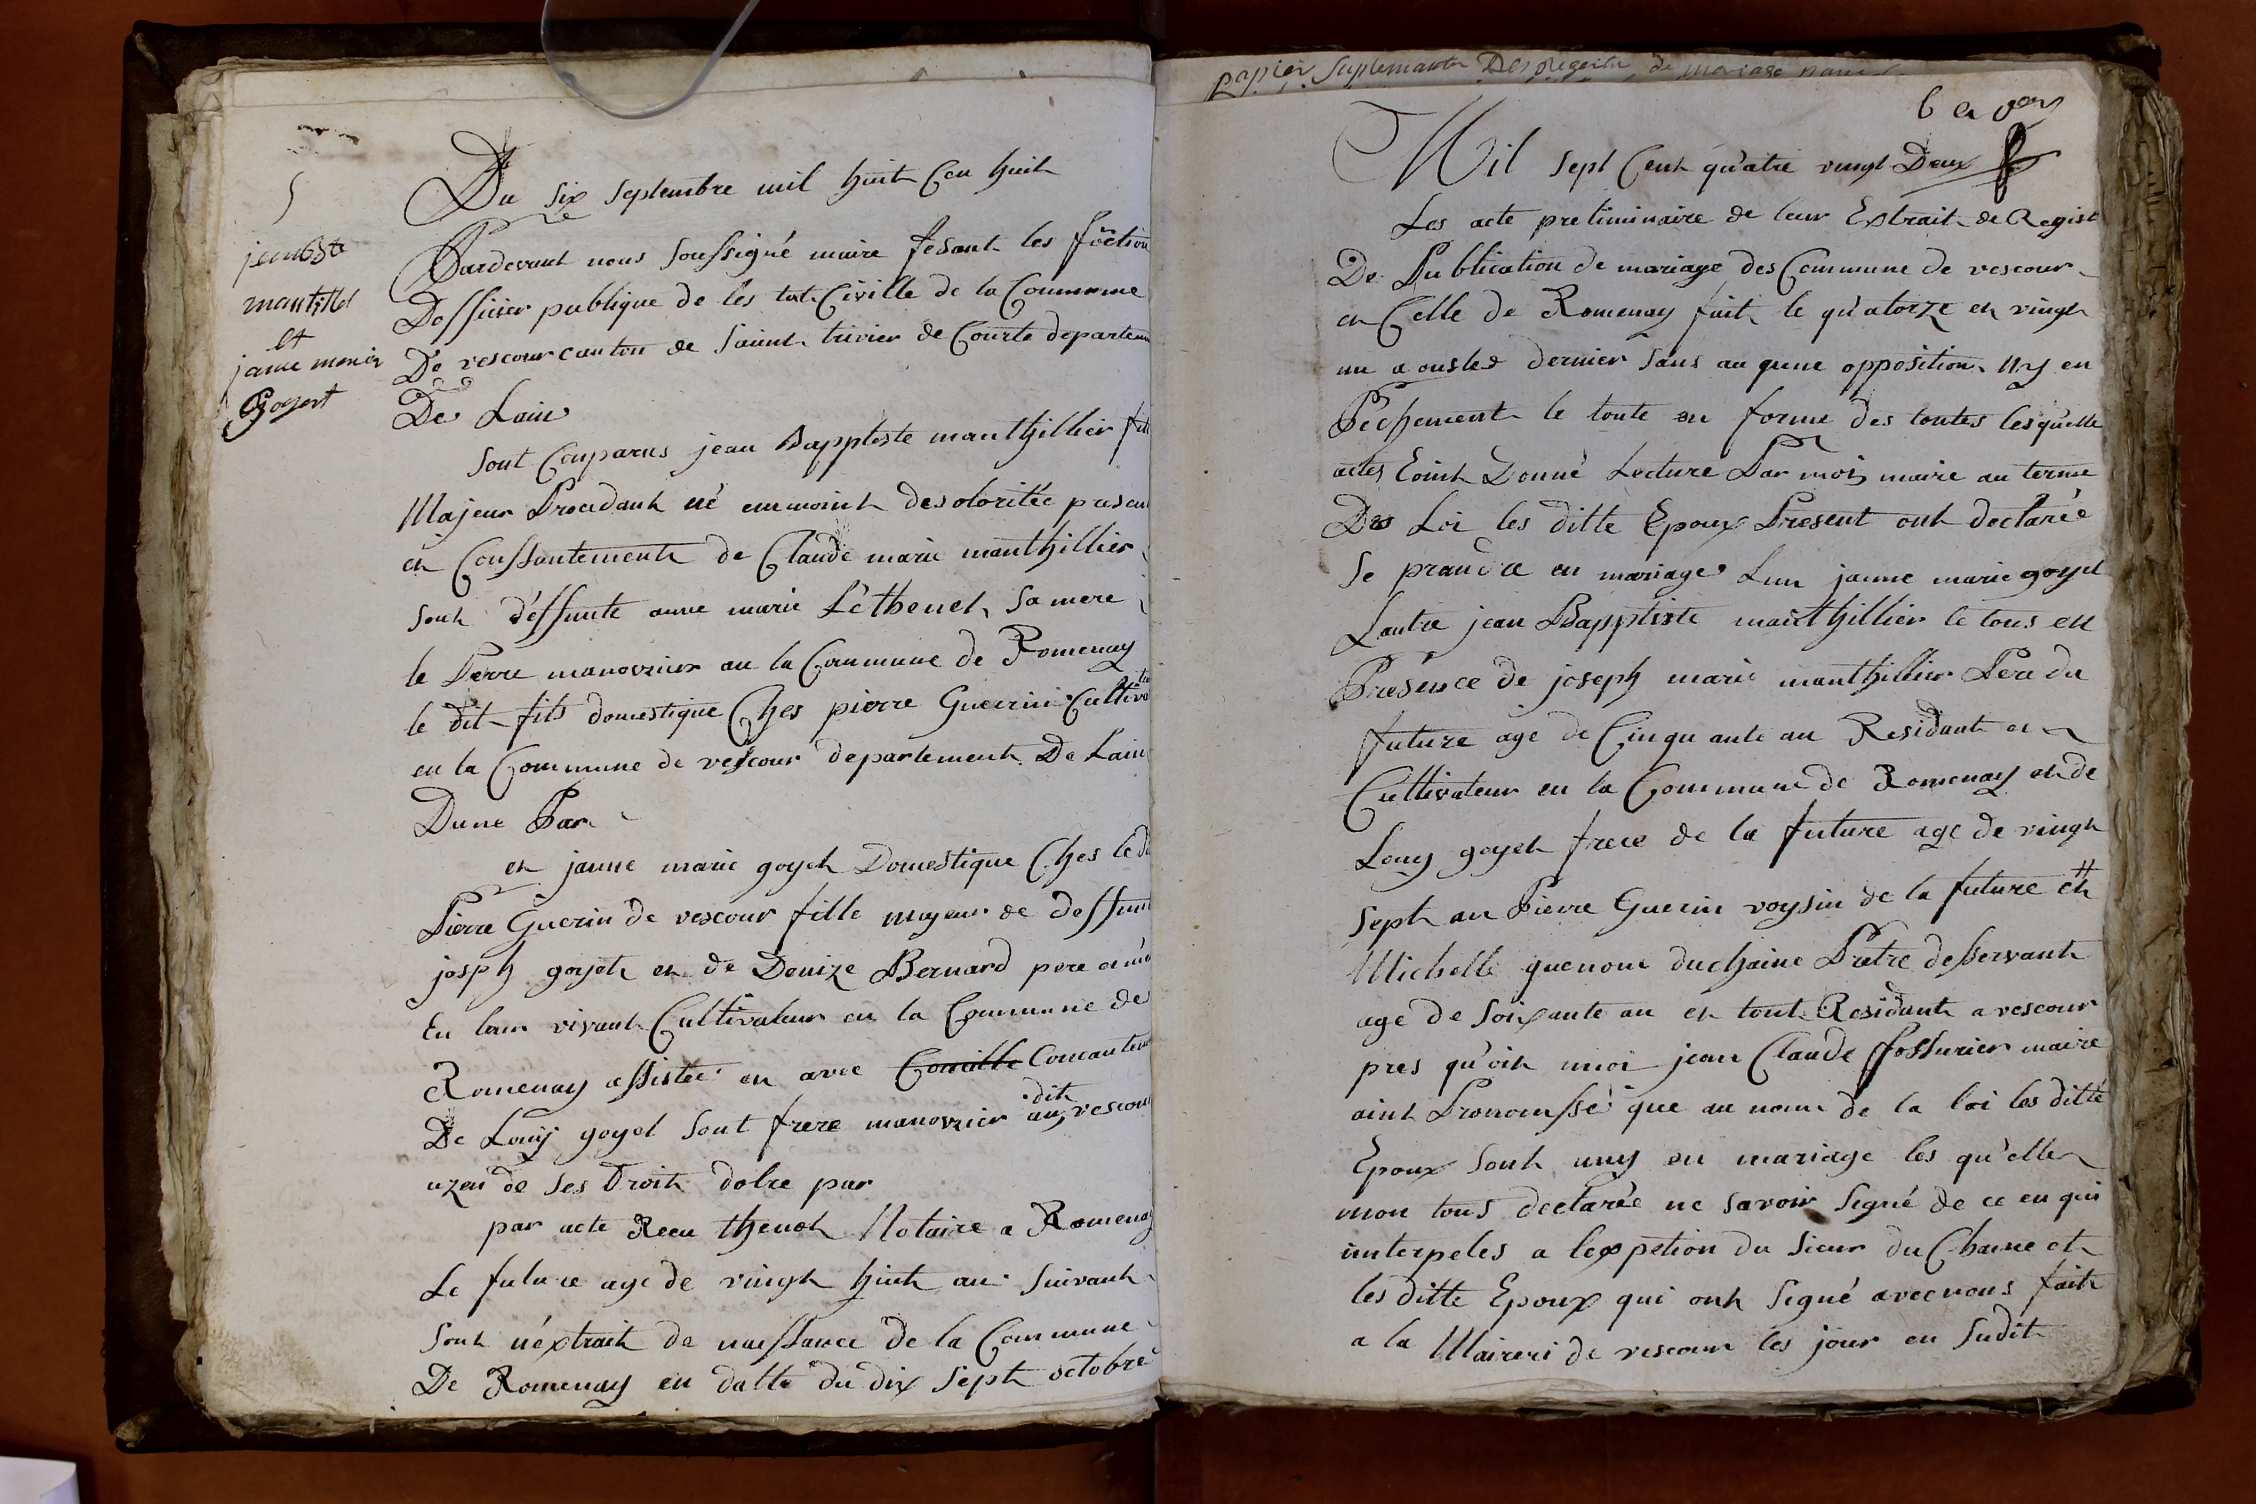 5
jean Bte
manthillel
et
janne marie
Goyert
Du six septembre mil huit Cen huit
Pardevant nous soussigné maire fesant les fōction
Dofficier publique de les tat Civille de la Commune
De vescour canton de saint trivier de Courte departem
De Lain
sont Comparus jean Bapptiste manthillier fils
Majeur Procedant né emmoint desoloritée presen
en Conssantement de Claude marie manthillier
sont déffunte anne marie Léthenet sa mere
le Perre manovrier au la Commune de Romenay
le dit fils domestique Ches pierre Guerrin Cultiva
en la Commune de vescour departement De Lain
Dune Par
en janne marie goyet Domestique Ches le di
Pierre Guerin de vescour fille majeur de deffun
josph goyet en de Denize Bernard pere
En leur vivant Cultivateur en la Commune de
Romenay assistée en avec Comante
De Louy goyet sont frere manovrier au dit vescour
uzen de ses Droit dolre par
par acte Recu thenot Notaire a Romenay
Le future age de vingt huit an suivant
sont néxtrait de naissance de la Commune
De Romenay en datte du dix sept octobre
papier suplemante Des de mariage
6
Mil sept Cent qu'atre vingt Deux
Les acte preliminaire de leur Extrait de Regist
De Publication de mariage des Commune de vescour
en Celle de Romenay fait le qu'atorze en vingt
un aoustes dernier sans auqune opposition ny en
Pechement le toute en forme des toutes lesquelle
actes Loint Donné Lecture Par moi maire au terme
Des Loi les ditte Epoux Present ont declarée
se prandre en mariage Lun janne marie goyet
Lautre jean Bapptiste manthillier le tous en
Présence de joseph marie manthillier Pere du
future age de Cinquante an Residante en
Cultivateur en la Commune de Romenay et de
Louy goyet frere de la future age de vingt
sept an Pierre Guerin voysin de la future eth
Michelle quenoue duchaine Pretre desservant
age de soixante an en tout Residant a vescour
pres qu'oit moi jean Claude ffossurier maire
aint Pronoussé que au nom de la loi les ditte
Epoux sont uny en mariage les qu'elle
mon tous declarée ne savoir signé de ce en qui
interpeles a lexpetion du sieur du Chaine et
les ditte Epoux qui ont signé avec nous fait
a la Maireri de vescour les jour en sudit